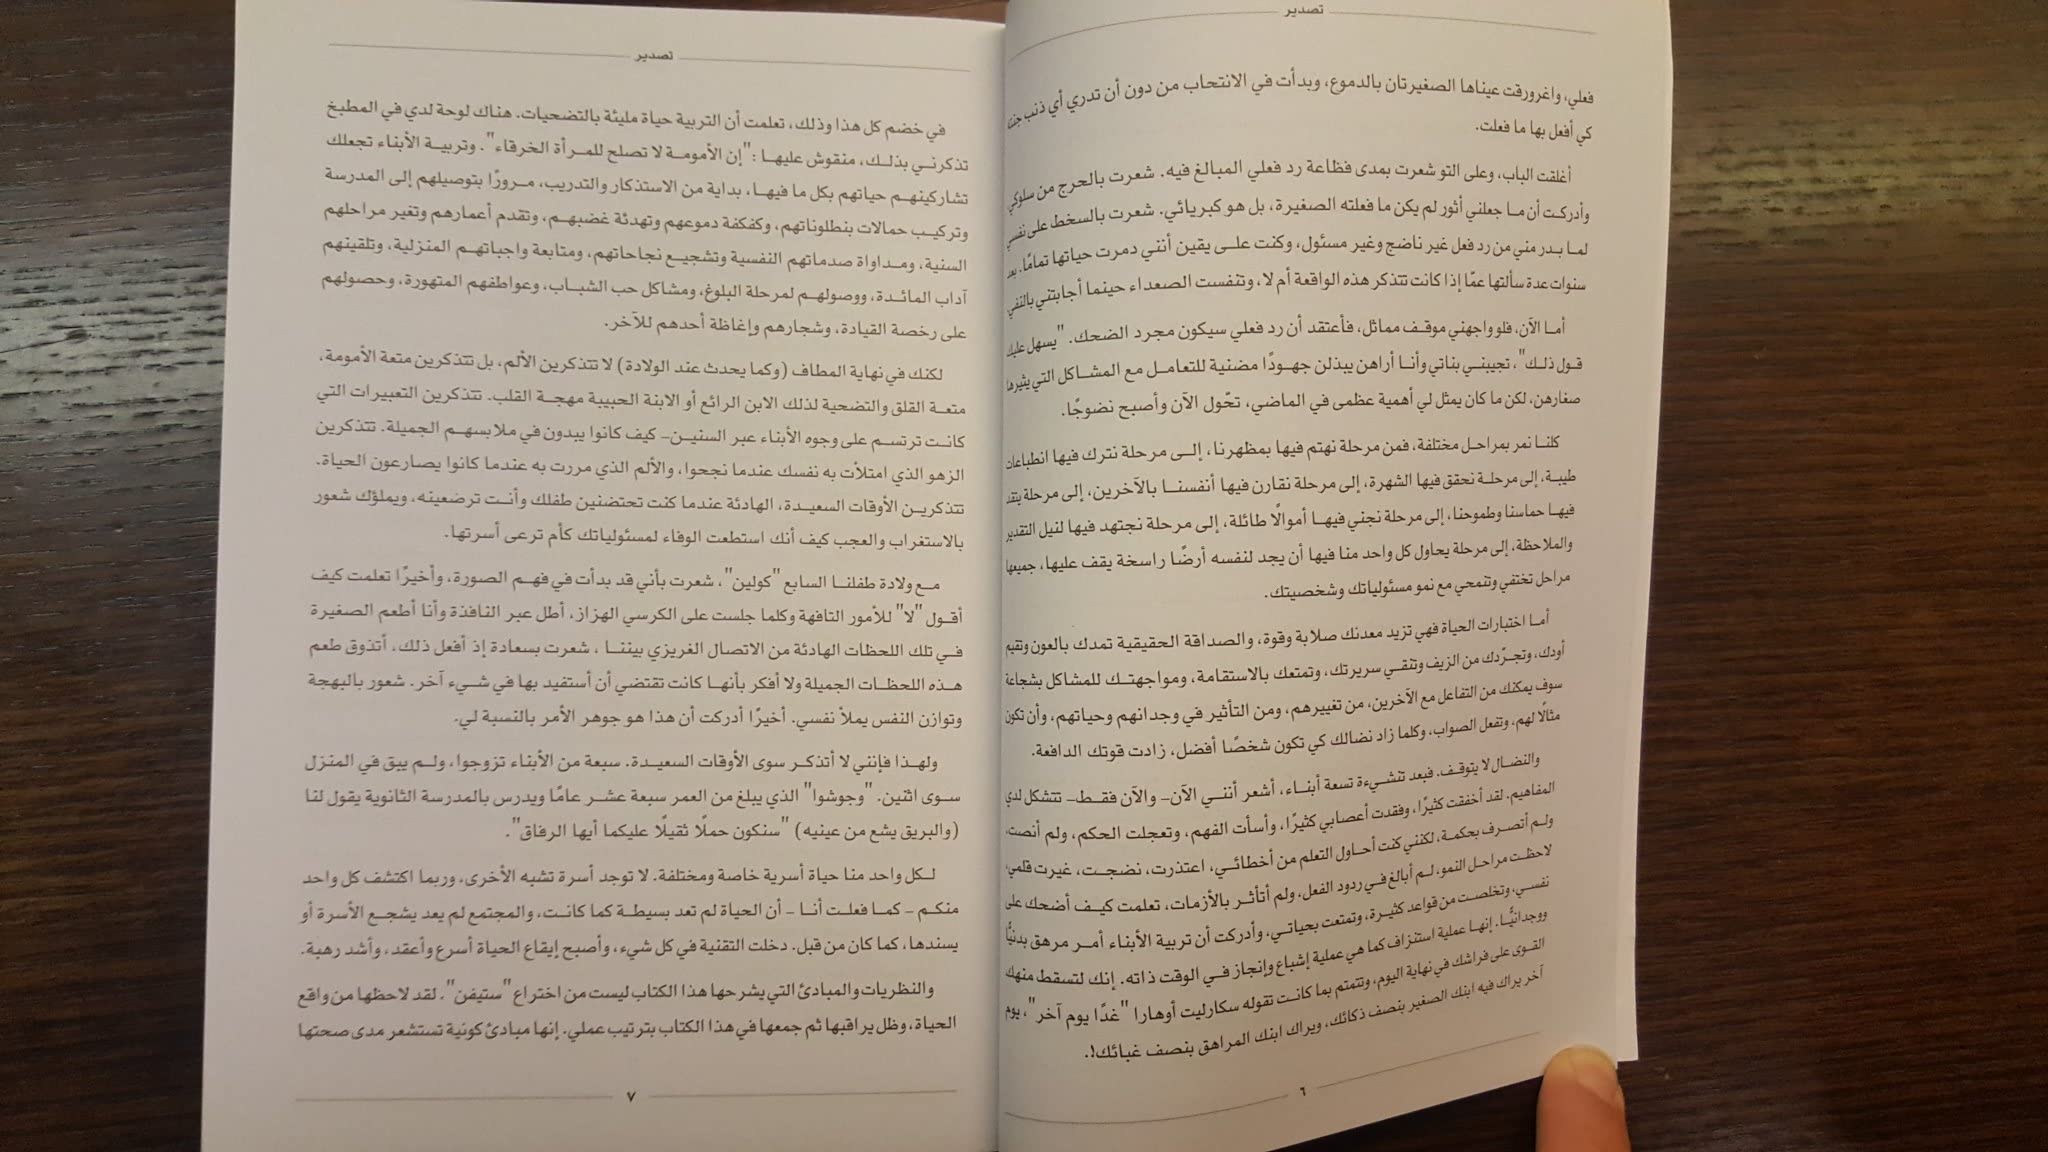 تصدير
فعلي، واغرورقت عيناها الصغيرتان بالدموع، وبدأت في الانتحاب من دون أن تدري أي ذنب جنته
كي أفعل بها ما فعلت.
أغلقت الباب، وعلى التو شعرت بمدى فظاعة رد فعلي المبالغ فيه. شعرت بالحرج من سلوكي
وأدركت أن ما جعلني أثور لم يكن ما فعلته الصغيرة، بل هو كبريائي. شعرت بالسخط على نفسي
لما بدر مني من رد فعل غير ناضج وغير مسئول، وكنت على يقين أنني دمرت حياتها تمامًا. بعد
سنوات عدة سألتها عمّا إذا كانت تتذكر هذه الواقعة أم لا، وتنفست الصعداء حينما أجابتني بالنفي
أما الآن، فلو واجهني موقف مماثل، فأعتقد أن رد فعلي سيكون مجرد الضحك. "يسهل عليك
قول ذلك"، تجيبني بناتي وأنا أراهن يبذلن جهودًا مضنية للتعامل مع المشاكل التي يثيرها
صغارهن، لكن ما كان يمثل لي أهمية عظمى في الماضي، تحّول الآن وأصبح نضوجًا.
كلنا نمر بمراحل مختلفة، فمن مرحلة نهتم فيها بمظهرنا، إلى مرحلة نترك فيها انطباعات
طيبة، إلى مرحلة نحقق فيها الشهرة، إلى مرحلة نقارن فيها أنفسنا بالآخرين، إلى مرحلة يتقد
فيها حماسنا وطموحنا، إلى مرحلة نجني فيها أموالًا طائلة، إلى مرحلة نجتهد فيها لنيل التقدير
والملاحظة، إلى مرحلة يحاول كل واحد منا فيها أن يجد لنفسه أرضًا راسخة يقف عليها، جميعها
مراحل تختفي وتنمحي مع نمو مسئولياتك وشخصيتك.
أما اختبارات الحياة فهي تزيد معدنك صلابة وقوة، والصداقة الحقيقية تمدك بالعون وتقيم
أودك، وتجرّدك من الزيف وتنقي سريرتك، وتمتعك بالاستقامة، ومواجهتك للمشاكل بشجاعة
سوف يمكنك من التفاعل مع الآخرين، من تغييرهم، ومن التأثير في وجدانهم وحياتهم، وأن تكون
مثالًا لهم، وتفعل الصواب، وكلما زاد نضالك كي تكون شخصًا أفضل، زادت قوتك الدافعة.
والنضال لا يتوقف. فبعد تنشيءة تسعة أبناء، أشعر أنني الآن- والآن فقط- تتشكل لدي
المفاهيم. لقد أخفقت كثيرًا، وفقدت أعصابي كثيرًا، وأسأت الفهم، وتعجلت الحكم، ولم أنصت،
ولم أتصرف بحكمة، لكنني كنت أحاول التعلم من أخطائي، اعتذرت، نضجت، غيرت
لاحظت مراحل النمو، لم أبالغ في ردود الفعل، ولم أتأثر بالأزمات، تعلمت كيف أضحك على
نفسي، وتخلصت من قواعد كثيرة، وتمتعت بحياتي، وأدركت أن تربية الأبناء أمر مرهق بدنيًّا
ووجدانيًّا. إنها عملية استنزاف كما هي عملية إشباع وإنجاز في الوقت ذاته. إنك لتسقط منهك
القوى على فراشك في نهاية اليوم، وتتمتم بما كانت تقوله سكارليت أوهارا "غدًا يوم آخر"، يوم
آخر يراك فيه ابنك الصغير بنصف ذكائك، ويراك ابنك المراهق بنصف غبائك!.
٦
تصدير
في خضم كل هذا وذلك، تعلمت أن التربية حياة مليئة بالتضحيات. هناك لوحة لدي في المطبخ
تذكرني بذلك، منقوش عليها :"إن الأمومة لا تصلح للمرأة الخرقاء". وتربية الأبناء تجعلك
تشاركينهم حياتهم بكل ما فيها، بداية من الاستذكار والتدريب، مرورًا بتوصيلهم إلى المدرسة
وتركيب حمالات بنطلوناتهم، وكفكفة دموعهم وتهدئة غضبهم، وتقدم أعمارهم وتغير مراحلهم
السنية، ومداواة صدماتهم النفسية وتشجيع نجاحاتهم، ومتابعة واجباتهم المنزلية، وتلقينهم
آداب المائدة، ووصولهم لمرحلة البلوغ، ومشاكل حب الشباب، وعواطفهم المتهورة، وحصولهم
على رخصة القيادة، وشجارهم وإغاظة أحدهم للآخر.
لكنك في نهاية المطاف (وكما يحدث عند الولادة) لا تتذكرين الألم، بل تتذكرين متعة الأمومة،
متعة القلق والتضحية لذلك الابن الرائع أو الابنة الحبيبة مهجة القلب. تتذكرين التعبيرات التي
كانت ترتسم على وجوه الأبناء عبر السنين- كيف كانوا يبدون في ملابسهم الجميلة. تتذكرين
الزهو الذي امتلأت به نفسك عندما نجحوا، والألم الذي مررت به عندما كانوا يصارعون الحياة.
تتذكرين الأوقات السعيدة، الهادئة عندما كنت تحتضنين طفلك وأنت ترضعينه، ويملؤك شعور
بالاستغراب والعجب كيف أنك استطعت الوفاء لمسئولياتك كأم ترعى أسرتها.
مع ولادة طفلنا السابع "كولين"، شعرت بأني قد بدأت في فهم الصورة، وأخيرًا تعلمت كيف
أقول "لا" للأمور التافهة وكلما جلست على الكرسي الهزاز، أطل عبر النافذة وأنا أطعم الصغيرة
في تلك اللحظات الهادئة من الاتصال الغريزي بيننا ، شعرت بسعادة إذ أفعل ذلك، أتذوق طعم
هذه اللحظات الجميلة ولا أفكر بأنها كانت تقتضي أن أستفيد بها في شيء آخر. شعور بالبهجة
وتوازن النفس يملأ نفسي. أخيرًا أدركت أن هذا هو جوهر الأمر بالنسبة لي.
ولهذا فإنني لا أتذكر سوى الأوقات السعيدة. سبعة من الأبناء تزوجوا، ولم يبق في المنزل
سوى اثنين. "وجوشوا" الذي يبلغ من العمر سبعة عشر عامًا ويدرس بالمدرسة الثانوية يقول لنا
(والبريق يشع من عينيه) "سنكون حملًا ثقيلًا عليكما أيها الرفاق".
لكل واحد منا حياة أسرية خاصة ومختلفة. لا توجد أسرة تشبه الأخرى، وربما اكتشف كل واحد
منكم - كما فعلت أنا - أن الحياة لم تعد بسيطة كما كانت، والمجتمع لم يعد يشجع الأسرة أو
يسندها، كما كان من قبل. دخلت التقنية في كل شيء، وأصبح إيقاع الحياة أسرع وأعقد، وأشد رهبة.
والنظريات والمبادئ التي يشرحها هذا الكتاب ليست من اختراع "ستيفن". لقد لاحظها من واقع
الحياة، وظل يراقبها ثم جمعها في هذا الكتاب بترتيب عملي. إنها مبادئ كونية تستشعر مدى صحتها
٧